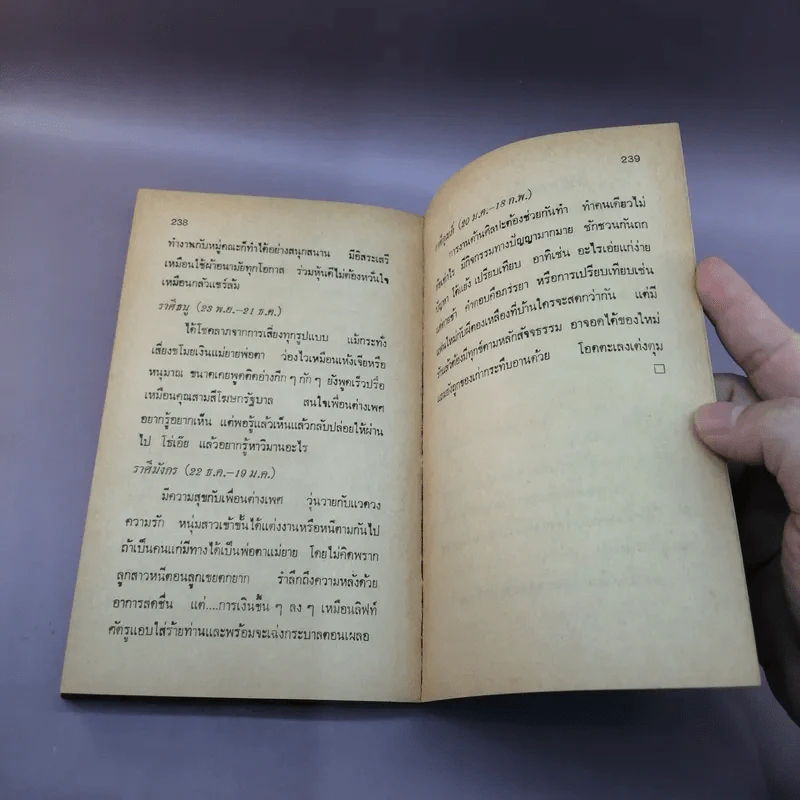 238
ทำงานกับหมู่คณะก็ทำได้อย่างสนุกสนาน มีอิสระเสรี
เหมือนใช้ผ้าอนามัยทุกโอกาส ร่วมหุ้นดีไม่ต้องหวั่นใจ
เหมือนกลัวแชร์ล้ม
ราศีธนู (23 พ.ย.–21 ธ.ค.)
ได้โชคลาภจากการเสี่ยงทุกรูปแบบ แม้กระทั่ง
เสี่ยงขโมยเงินแม่ยายพ่อตา ว่องไวเหมือนเห้งเจียหรือ
หนุมาณ ขนาดเคยพูดติดอ่างกึก ๆ กัก ๆ ยังพูดเร็วปรื๋อ
เหมือนคุณสามสีโฆษกรัฐบาล สนใจเพื่อนต่างเพศ
อยากรู้อยากเห็น แต่พอรู้แล้วเห็นแล้วกลับปล่อยให้ผ่าน
ไป โธ่เอ๊ย แล้วอยากรู้หาวิมานอะไร
ราศีมังกร (22 ธ.ค.–19 ม.ค.)
มีความสุขกับเพื่อนต่างเพศ วุ่นวายกับแวดวง
ความรัก หนุ่มสาวเข้าขั้นได้แต่งงานหรือหนีตามกันไป
ถ้าเป็นคนแก่มีทางได้เป็นพ่อตาแม่ยาย โดยไม่คิดพราก
ลูกสาวหนีตอนลูกเขยตกยาก รำลึกถึงความหลังด้วย
อาการสดชื่น แต่....การเงินขึ้น ๆ ลง ๆ เหมือนลิฟท์
ศัตรูแอบใส่ร้ายท่านและพร้อมจะเฉ่งกระบาลตอนเผลอ
239
(20 ม.ค.–18 ก.พ.)
การงานด้านศิลปะต้องช่วยกันทำ ทำคนเดียวไม่
มีกิจกรรมทางปัญญามากมาย ชักชวนกันถก
ปัญหา โต้แย้ง เปรียบเทียบ อาทิเช่น อะไรเอ่ยแก่ง่าย
คำตอบคือภรรยา หรือการเปรียบเทียบเช่น
ใหม่กับผีตองเหลืองที่บ้านใครจะสดกว่ากัน แต่มี
ต้องมีทุกข์ตามหลักสัจจธรรม อาจอดได้ของใหม่
และยังถูกของเก่ากระทืบอานด้วย โอดตะเลงเต่งตุม